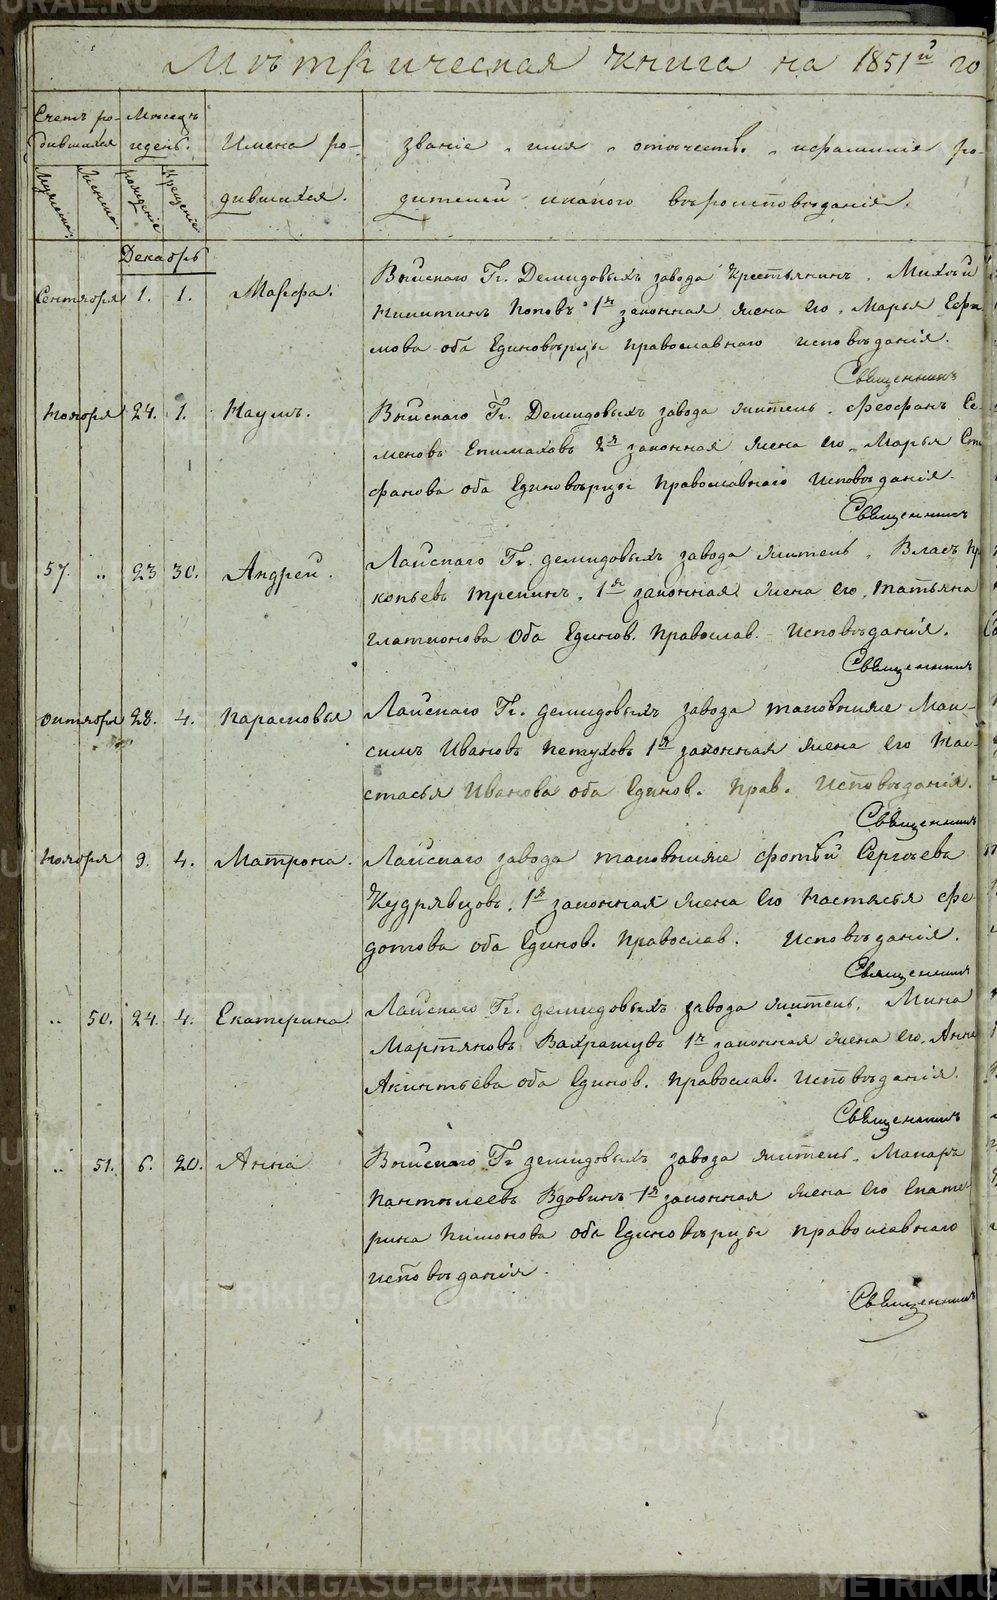 Метрическая книга на 1851й го
Счетъ ро- Месяцъ
дившихся и день. Имена ро- званіе, имя, отечеств. и фамиліе ро-
Мужеска. Женска. рожденіе Крещеніе дившихся. дителей и какого вѣроисповѣданія.
Декабрь
Выйскаго Гг. Демидовыхъ завода крестьянинъ, Михѣй
Сентября 1. 1. Марфа. Никитинъ Поповъ 1я законная жена его, Марья Ефи
мова оба Единовѣрцы православнаго исповѣданія.
Священникъ
Ноября 24. 1. Наумъ. Выйскаго Гг. Демидовыхъ завода житель, Феофанъ Се-
меновъ Епимаховъ 2я законная жена его, Марья Сте
фанова оба Единовѣрцы Православнаго Исповѣданія.
Священникъ
57. „ 23 30. Андрей. Лайскаго Гг. демидовыхъ завода житель, Власъ Пр
копьевъ Трепинъ, 1я законная жена его, Татьяна
Платионова Оба Единов. Православ. Исповѣданія.
Священникъ
Октября 28. 4. Парасковья Лайскаго Гг. демидовыхъ завода таковыяже Мак-
симъ Ивановъ Петуховъ 1я законная жена его Нас-
стасья Иванова оба Единов. Прав. Исповѣданія.
Священникъ
Ноября 9. 4. Матрона. Лайскаго завода таковыяже Фотѣй Сергѣевъ
Кудрявцовъ, 1я законная жена его Настасья Фе
дотова оба Единов. Православ. Исповѣданія.
Священникъ
„ 50. 24. 4. Екатерина. Лайскаго Гг. демидовыхъ завода житель, Мина
Мартяновъ Вахрашувъ 1я законная жена его, Анна
Акинтьева оба Единов. Православ. Исповѣданія.
Священникъ
„ 51. 6. 20. Анна Выйскаго Гг демидовыхъ завода житель, Макаръ
Пантелеевъ Вдовинъ 1я законная жена его Екате
рина Пимонова оба Единовѣрцы православнаго
исповѣданія.
Священникъ
METRIKI.GASO-URAL.RU